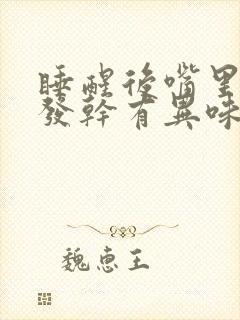 睡醒後嘴里
發幹有異味
魏惠王